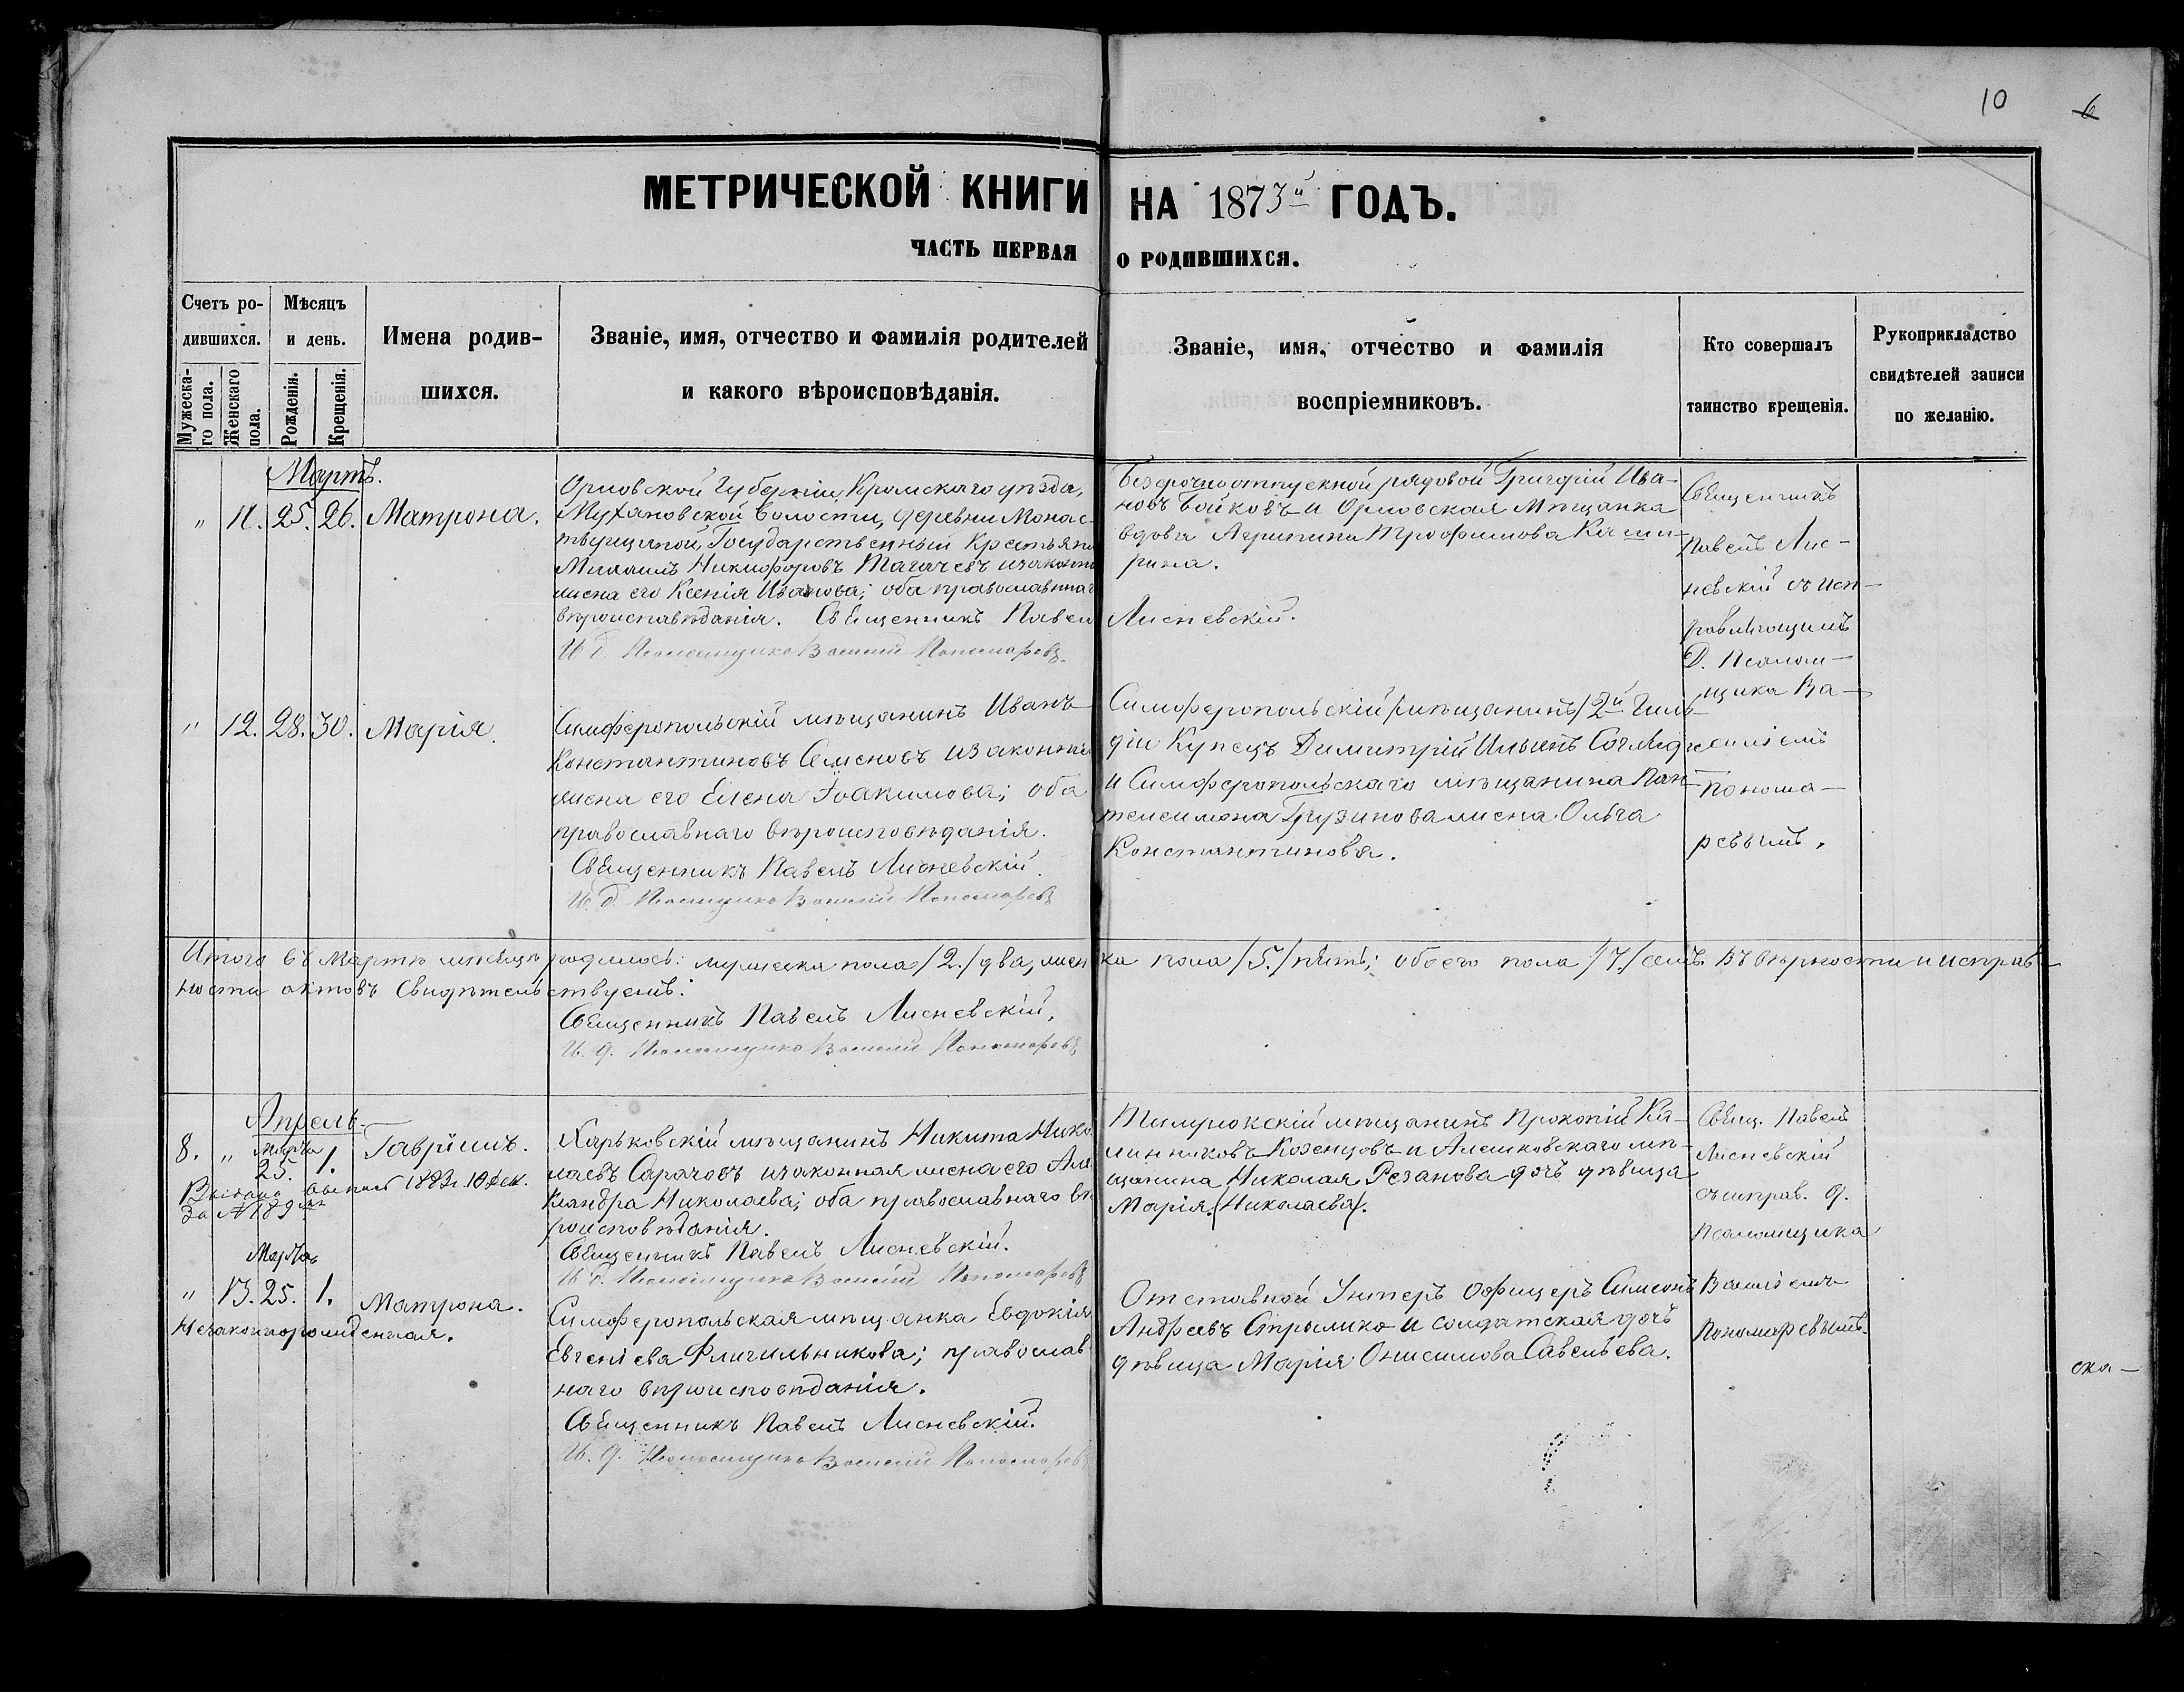 10 6
МЕТРИЧЕСКОЙ КНИГИ НА 1873й ГОДЪ.
ЧАСТЬ ПЕРВАЯ О РОДИВШИХСЯ.
Счетъ ро-
дившихся.
Мужеска-
го пола.
Женскаго
пола.
Мѣсяцъ
и день.
Рожденія.
Крещенія.
Имена родив-
шихся.
Званіе, имя, отчество и фамилія родителей
и какого вѣроисповѣданія.
Званіе, имя, отчество и фамилія
воспріемниковъ.
Кто совершалъ
таинство крещенія.
Рукоприкладство
свидѣтелей записи
по желанію.
Мартъ.
" 11. 25. 26. Матрона.
Орловской Губерніи, Кромскаго уѣзда,
волости, деревни Монас-
Государственный Крестьянъ
Михаилъ Никифоровъ и законная
жена его Ксенія Иванова; оба православнаго
вѣроисповѣданія. Священникъ Павелъ Лисневскій.
И. д. Псаломщика Василій Пономаревъ
Безсрочноотпускной рядовой Григорій Ива-
новъ Бойковъ и Орловская Мѣщанка
вдова Агрипина Трофимова
Священникъ
Павелъ Лис-
невскій съ исп-
равляющимъ
Д. Псалом-
щика Ва-
силіемъ
Понома-
ревымъ.
" 12. 28. 30. Марія.
Симферопольскій мѣщанинъ Иванъ
Константиновъ Семеновъ и законная
жена его Елена Іоакимова; оба
православнаго вѣроисповѣданія.
Священникъ Павелъ Лисневскій.
И. д. Псаломщика Василій Пономаревъ
Симферопольскій /мѣщанинъ/ 2й Гиль-
діи Купецъ Димитрій Ильинъ
и Симферопольскаго мѣщанина Пан-
телеимона Грузинова жена Ольга
Константинова.
Итого въ Мартѣ мѣсяцѣ родилось: мужеска пола /2./ два, женска пола /5./ пять; обоего пола /7./ семь. Въ вѣрности и исправ-
ности актовъ свидѣтельствуемъ:
Священникъ Павелъ Лисневскій,
И. д. Псаломщика Василій Пономаревъ
Апрель.
Марта
8. " 25. 1. Гавріилъ.
Выдана выпись 1883г. 10 Дек.
За №189
Харьковскій мѣщанинъ Никита Нико-
лаевъ Сарачовъ и законная жена его Але-
ксандра Николаева; оба православнаго вѣ-
роисповѣданія.
Священникъ Павелъ Лисневскій.
И. д. Псаломщика Василій Пономаревъ
Темрюкскій мѣщанинъ Прокопій Ка-
линниковъ Козенцовъ и Алешковскаго мѣ-
щанина Николая Резанова дочь дѣвица
Марія. (Николаева).
Свящ. Павелъ
Лисневскій
съ исправ. д.
Псаломщика
Василіемъ
Пономаревымъ.
Марта
" 13. 25. 1. Матрона.
Незаконнорожденная.
Симферопольская мѣщанка Евдокія
Евгеніева Фличильникова; православ-
наго вѣроисповѣданія.
Священникъ Павелъ Лисневскій.
И. д. Псаломщика Василій Пономаревъ
Отставной Унтеръ Офицеръ Симеонъ
Андреевъ Стрылико и солдатская дочь
дѣвица Марія Онисимова Савельева.
ска-